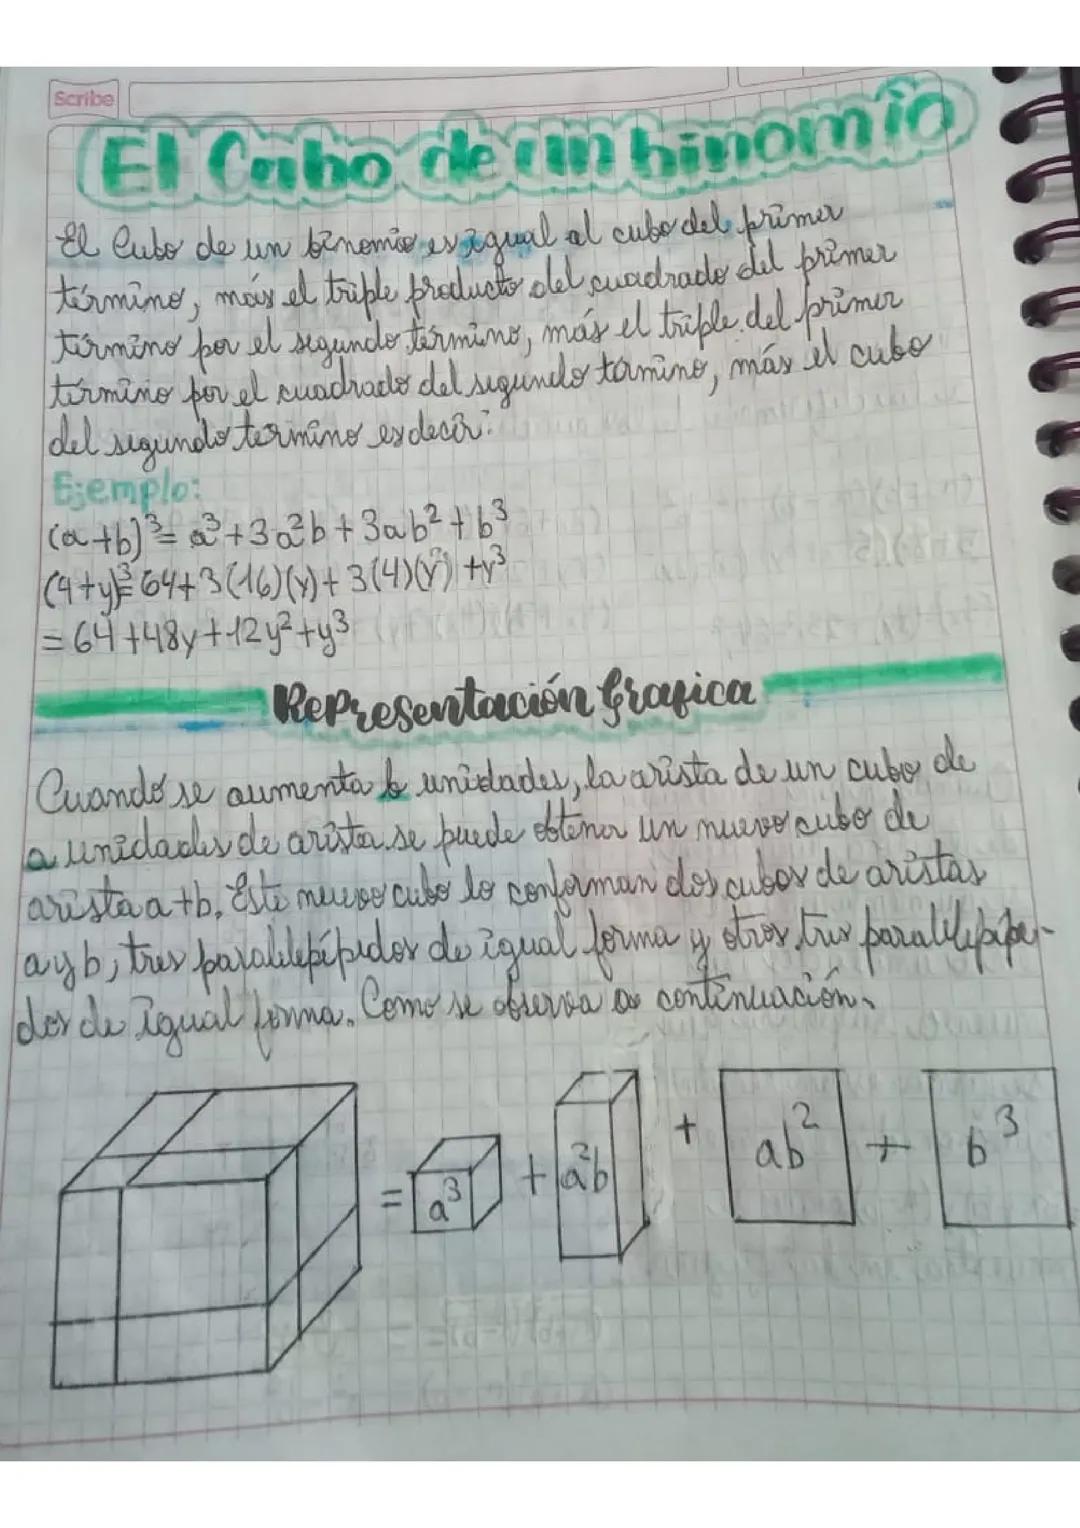 Scribe
El Cubo de un binomio
El Cubo de un binomio es igual al cubo del primer
término, más el triple producto del cuadrado del primer
término por el segundo término, más el triple del primer
término por el cuadrado del segundo término, más el cubo
del segundo termino es decir:
Ejemplo:
(a+b)³= a³+3a²b+3ab²+b³
(4+y)³=64+3(16)(y)+3(4)(y²)+y³
=64+48y+12y²+y³
Representación Grafica
Cuando se aumenta b unidades, la arista de un cubo de
a unidades de arista se puede obtener un nuevo cubo de
arista a+b. Este nuevo cubo lo conforman dos cubos de aristas
a y b, tres paralelepípedos de igual forma y otros tres paralelepípe-
dos de igual forma. Como se observa a continuación.
= a³ + a²b + ab² + b³